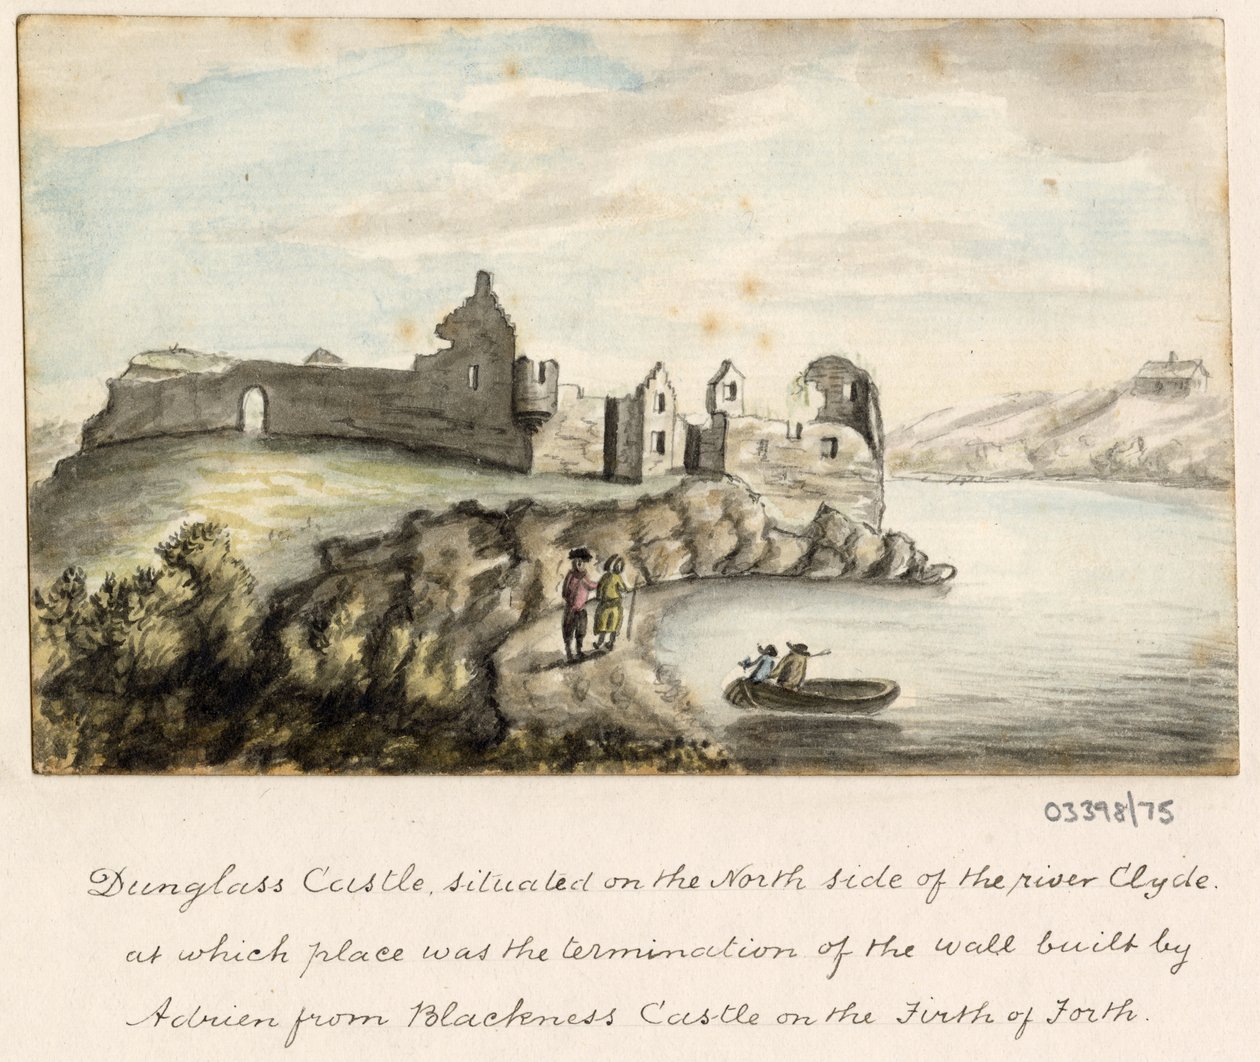 03398/75
Dunglass Castle, situated on the North side of the river Clyde.
at which place was the termination of the wall built by
Adrien from Blackness Castle on the Firth of Forth.